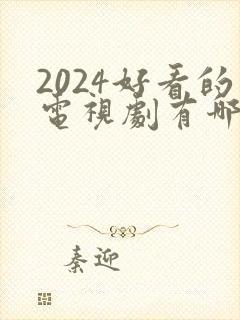 2024好看的
電視劇有哪
秦迎